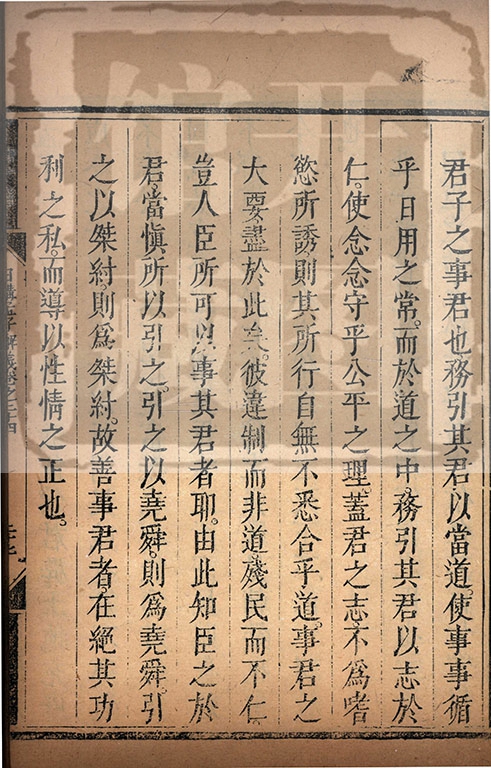 君子之事君也務引其君以當道。使事事循
乎日用之常。而於道之中。務引其君以志於
仁。使念念守乎公平之理。蓋君之志。不爲嗜
慾所誘。則其所行自無不悉合乎道。事君之
大要。盡於此矣。彼違制而非道。殘民而不仁。
豈人臣所可以事其君者耶。由此知臣之於
君。當愼所以引之。引之以堯舜。則爲堯舜。引
之以桀紂。則爲桀紂。故善事君者。在絕其功
利之私。而導以性情之正也。